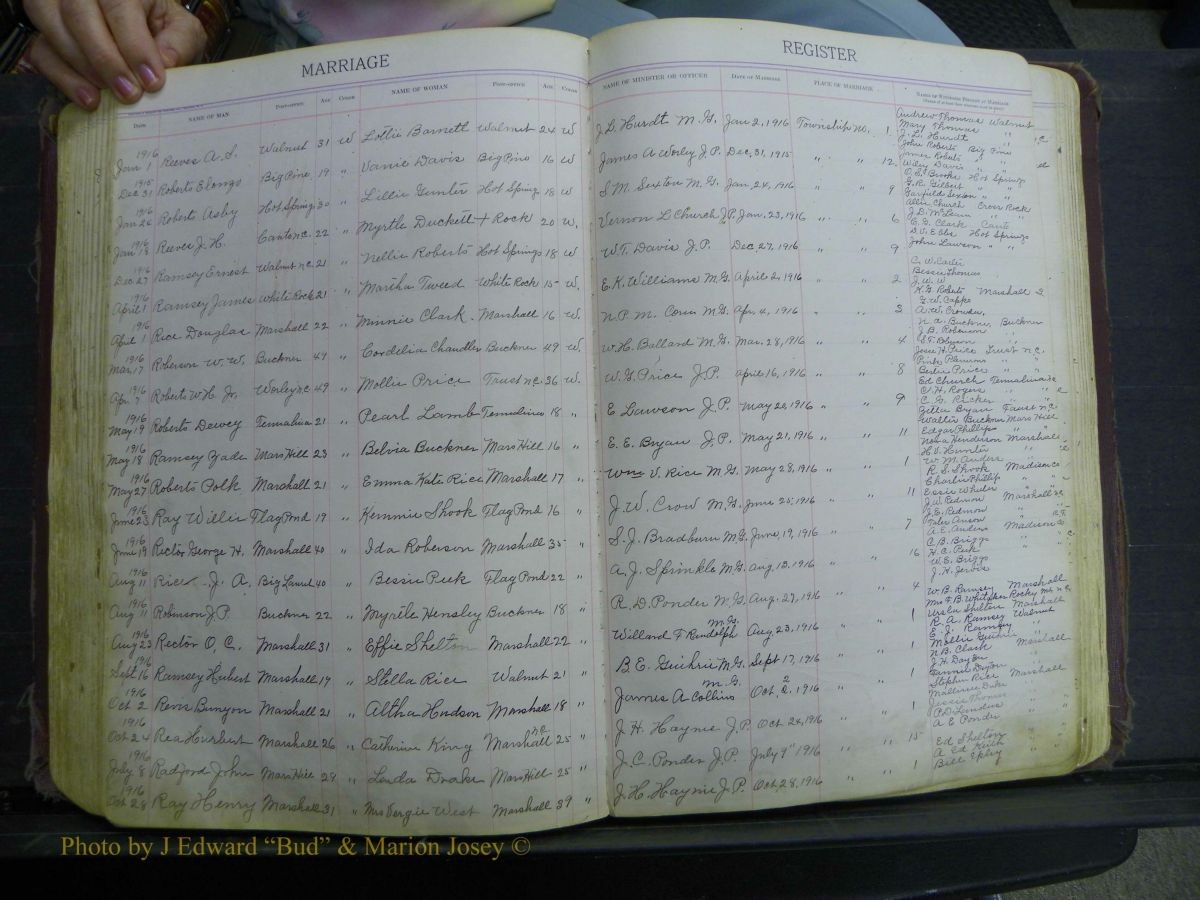 MARRIAGE
REGISTER
DATE NAME OF MAN POST-OFFICE AGE COLOR NAME OF WOMAN POST-OFFICE AGE COLOR
NAME OF MINISTER OR OFFICER DATE OF MARRIAGE PLACE OF MARRIAGE NAMES OF WITNESSES PRESENT AT MARRIAGE
1916 Jan 1 Reeves A. S. Walnut 31 W Lollie Barnett Walnut 24 W
1915 Dec 31 Roberts Elonzo Big Pine 19 " Vanie Davis Big Pine 16 W
1916 Jan 24 Roberts Asby Hot Springs 30 " Lillie Gunter Hot Spring 18 W
1916 Jan 18 Reeves J. H. Canto n.c. 22 " Myrtle Duckett + Rock 20 W.
1916 Dec 27 Ramsey Ernest Walnut n.c. 21 " Nellie Roberts Hot Springs 18 W
1916 April 1 Ramsey James White Rock 21 " Martha Tweed White Rock 15 W.
1916 April 1 Rice Douglas Marshall 22 " Minnie Clark. Marshall 16 W.
1916 Mar. 17 Roberson W. W. Buckner 49 " Cordelia Chandler Buckner 49 W.
1916 Apr. 7 Roberts W. H. Jr. Worley n.c. 49 " Mollie Price Trust n.c. 36 W.
1916 May 19 Roberts Dewey 21 " Pearl Lamb 18 "
1916 May 18 Ramsey Zade Mars Hill 23 " Belvia Buckner Mars Hill 16 "
1916 May 27 Roberts Polk Marshall 21 " Emma Kate Rice Marshall 17 "
1916 June 23 Ray Willie Flag Pond 19 " Kemmie Shook Flag Pond 16 "
1916 June 19 Rector George H. Marshall 40 " Ida Roberson Marshall 35 "
1916 Aug 11 Rice J. A. Big Laurel 40 " Bessie Peek Flag Pond 22 "
1916 Aug 11 Robinson J P Buckner 22 " Myrtle Hensley Buckner 18 "
1916 Aug 23 Rector O. C. Marshall 31 " Effie Shelton Marshall 22 "
1916 Sept 16 Ramsey Hubert Marshall 19 " Stella Rice Walnut 21 "
1916 Oct 2 Revis Bunyon Marshall 21 " Altha Hudson Marshall 18 "
1916 Oct 24 Rea Hurbert Marshall 26 " Catherine King Marshall n.c. 25 "
1916 July 8 Radford John Mars Hill 29 " Leuda Drake Mars Hill 25 "
1916 Oct 28 Ray Henry Marshall 31 " Mrs Vergie West Marshall 39 "
J. L. Hurdt M. G. Jan 2, 1916 Township no. 1
James A Worley J. P. Dec. 31, 1915 " " 12
S. M. Sexton M. G. Jan. 24, 1916 " " 9
Vernon L Church J.P. Jan. 23, 1916 " " 6
W. T. Davis J. P. Dec 27, 1916 " " 9
E. K. Williams M. G. April 2, 1916 " " 2
N. P. M. Corn M. G. Apr. 4, 1916 " " 3
W. H. Ballard M. G. Mar. 28, 1916 " " 4
W. G. Price J. P. April 16, 1916 " " 8
E Lawson J. P. May 20, 1916 " " 9
E. E. Bryan J. P. May 21, 1916 " " 11
Wm V. Rice M. G. May 28, 1916 " " 1
J. W. Crow M. G. June 25, 1916 " " 11
S. J. Bradburn M. G. June, 19, 1916 " " 7
A. J. Sprinkle M. G. Aug. 13, 1916 " " 16
R. D. Ponder M. G. Aug. 27, 1916 " " 4
Willard F Randolph M. G. Aug 23, 1916 " " 1
B. E. Guthrie M. G. Sept 17, 1916 " " 1
James A Collins M. G. Oct. 2, 1916 " " 1
J. H. Haynie J. P. Oct 24, 1916 " " 1
J. C. Ponder J. P. July 9" 1916 " " 15
J. H. Haynie J. P. Oct. 28, 1916 " " 1
Andrew Thomas Walnut
Mary Thomas "
J. L. Hurdt "
John Roberts Big Pine
James Roberts " "
Wiley Davis " "
O. S. Brooks Hot Springs
F. R. Gilbert " "
Garfield Sexton " "
Allie Church Cross Rock
J. D. McLean " "
E. G. Clark Canto
D. V. Ebbs Hot Springs
John Lawson " "
C. W. Carter
Bessie Thomas
J. W. W
K. G. Roberts Marshall 2
G. W. Capps
A. W. Crowder,
N. A. Buckner, Buckner
J. B. Roberson "
Jesse H. Price Trust n.c.
Pink Plemmons "
Berlie Price "
Ed Church
C. H. Rogers "
C. G. Ricker "
Zetta Bryan Faust n.c.
Walter Buckner Mars Hill
Edgar Phillips "
Neva Henderson Marshall
H. V. Hunter "
W. M. Anders "
R. S. Shook Madison Co
Charlie Phillips "
Essie Wheeler "
J. W. Redmon Marshall
J. E. Redmon "
A. E. Anders Madison Co
C. B. Briggs "
H. C. Peek "
W. E. Briggs "
J. H. Jervis
W. B. Ramsey Marshall
Mrs F. B. Whitaker Rocky Mt n.c.
Ursla Shelton Marshall
R. A. Ramsey Walnut
E. J. Ramsey "
Mollie Guthrie "
N. B. Clark Marshall
J. H. Dayton "
Fannie Dayton "
Stephen Rice "
Mallissie Duke Marshall
Jessie Thomas "
P. D. Landers "
A. E Ponder "
Ed Shelton
A Ed Keith
Bill Epley
Photo by J Edward “Bud” & Marion Josey ©